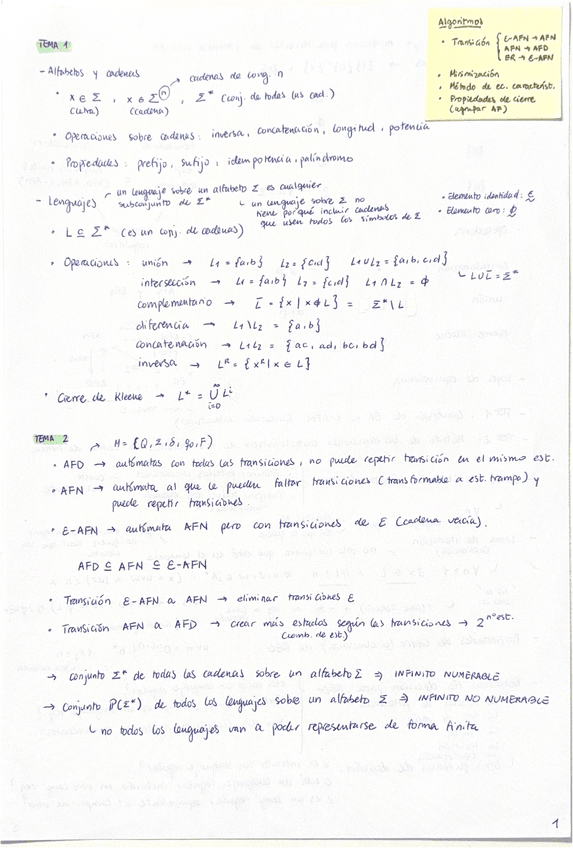 Algoritmos
· Transición { ε-AFN → AFN
AFN → AFD
ER → ε-AFN
· Minimización
· Método de ec. característ.
· Propiedades de cierre
(agrupar AF)
TEMA 1
- Alfabetos y cadenas
→ cadenas de long. n
· x ∈ Σ , x ∈ Σⁿ , Σ* (conj. de todas las cad.)
(letra) (cadena)
· Operaciones sobre cadenas: inversa, concatenación, longitud, potencia
· Propiedades: prefijo, sufijo, idempotencia, palíndromo
- Lenguajes
un lenguaje sobre un alfabeto Σ es cualquier
subconjunto de Σ*
un lenguaje sobre Σ no
tiene por qué incluir cadenas
que usen todos los símbolos de Σ
· Elemento identidad: ε
· Elemento cero: ϕ
· L ⊆ Σ* (es un conj. de cadenas)
· Operaciones: unión → L1 = {a,b} L2 = {c,d} L1 ∪ L2 = {a,b,c,d}
intersección → L1 = {a,b} L2 = {c,d} L1 ∩ L2 = ϕ
L ∪ L̄ = Σ*
complementario → L̄ = {x | x ∉ L} = Σ* \ L
diferencia → L1 \ L2 = {a,b}
concatenación → L1L2 = {ac, ad, bc, bd}
inversa → Lᴿ = {xᴿ | x ∈ L}
· Cierre de Kleene → L* = ∞ ∪ i=0 Lⁱ
TEMA 2
→ M = (Q, Σ, δ, q0, F)
· AFD → autómatas con todas las transiciones, no puede repetir transición en el mismo est.
· AFN → autómata al que le pueden faltar transiciones (transformable a est. trampa) y
puede repetir transiciones.
· ε-AFN → autómata AFN pero con transiciones de ε (cadena vacía).
AFD ⊆ AFN ⊆ ε-AFN
· Transición ε-AFN a AFN → eliminar transiciones ε
· Transición AFN a AFD → crear más estados según las transiciones → 2^nº est.
(comb. de est)
→ conjunto Σ* de todas las cadenas sobre un alfabeto Σ ⇒ INFINITO NUMERABLE
→ Conjunto P(Σ*) de todos los lenguajes sobre un alfabeto Σ ⇒ INFINITO NO NUMERABLE
no todos los lenguajes van a poder representarse de forma finita
1